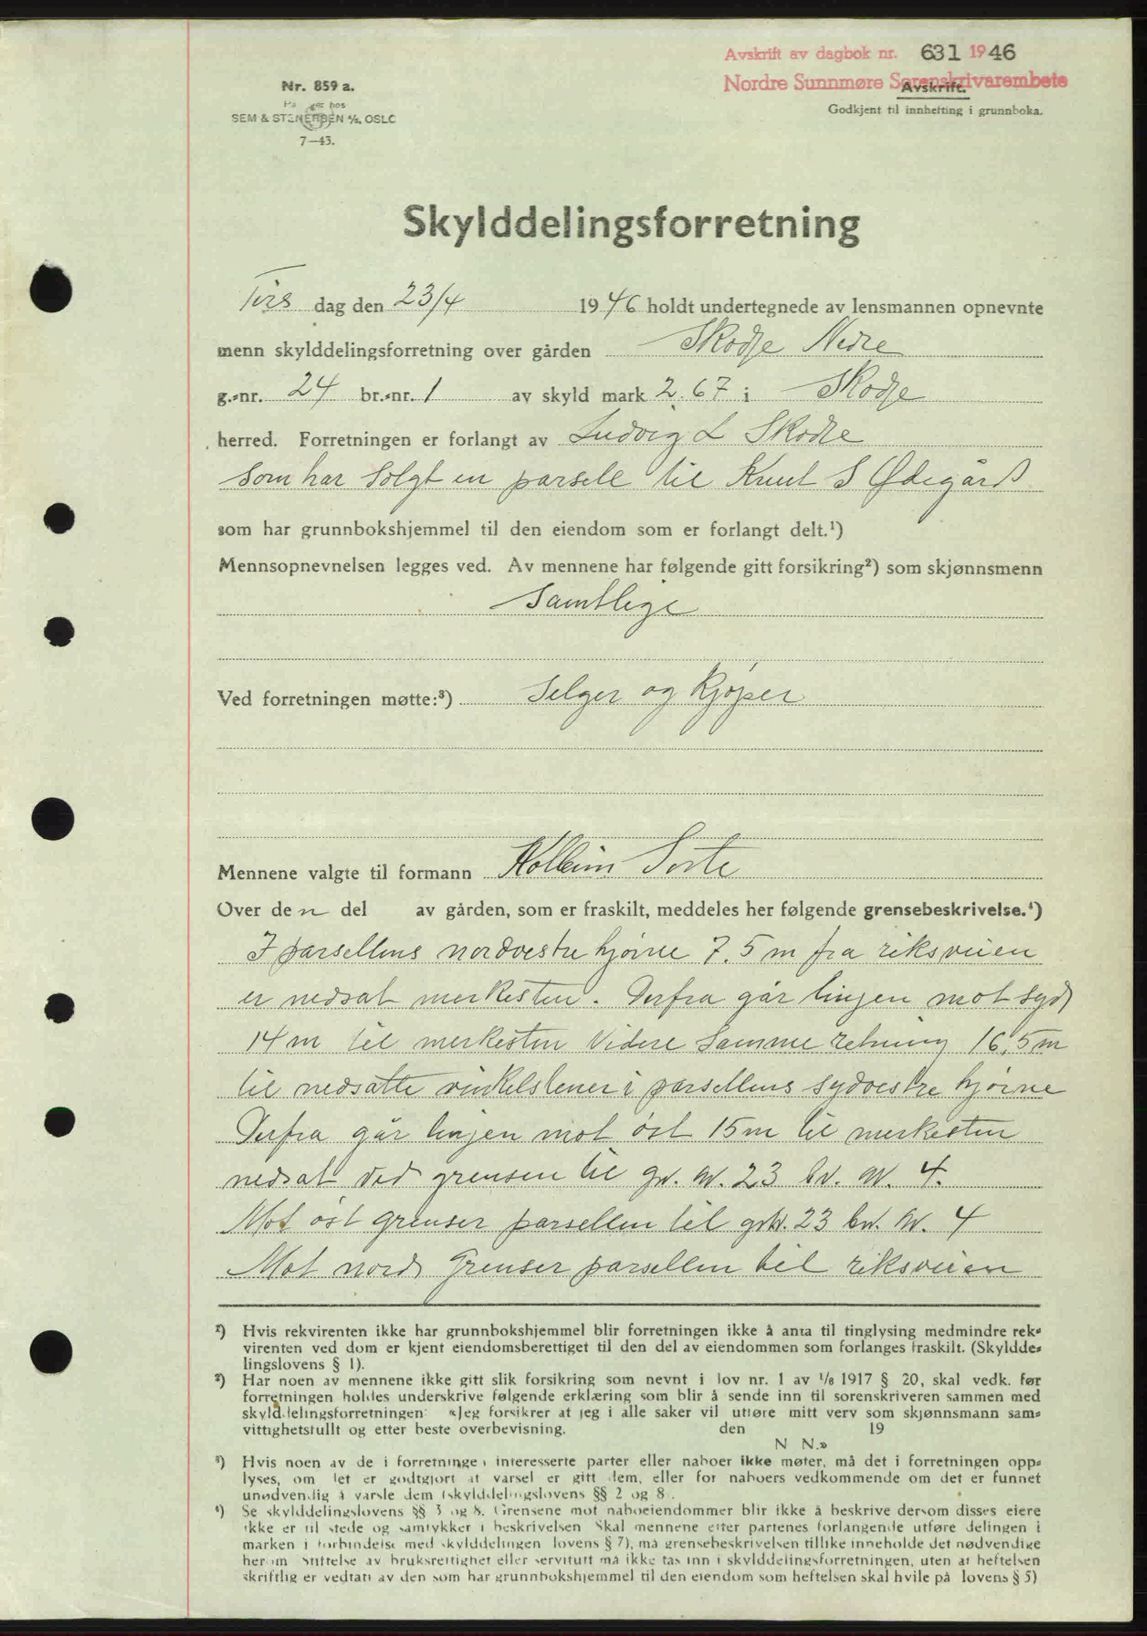 Avskrift av dagbok nr. 631 1946
Nordre Sunnmøre Sorenskrivarembete
Avskrift.
Godkjent til innhefting i grunnboka.
Nr. 859 a.
SEM & STENERSEN A/S. OSLO
7—43.
Skylddelingsforretning
Tirsdag den 23/4 1946 holdt undertegnede av lensmannen opnevnte
menn skylddelingsforretning over gården Skodje Nedre
g.-nr. 24 br.-nr. 1 av skyld mark 2.67 i Skodje
herred. Forretningen er forlangt av Ludvig L Skodje
som har solgt en parsell til Knut S Ødegård
som har grunnbokshjemmel til den eiendom som er forlangt delt.¹)
Mennsopnevnelsen legges ved. Av mennene har følgende gitt forsikring²) som skjønnsmenn
Samtlige
Ved forretningen møtte:³) Selger og Kjøper
Mennene valgte til formann Kolbein Sorte
Over den del av gården, som er fraskilt, meddeles her følgende grensebeskrivelse.⁴)
I parsellens nordvestre hjørne 7.5 m fra riksveien
er nedsat merkesten. Derfra går linjen mot syd
14 m til merkesten Videre samme retning 16,5 m
til nedsatte vinkelstener i parsellens sydvestre hjørne
Derfra går linjen mot øst 15 m til merkesten
nedsat ved grensen til gr. nr. 23 br. nr. 4.
Mot øst grenser parsellen til gr. nr. 23 br. nr. 4
Mot nord grenser parsellen til riksveien
¹) Hvis rekvirenten ikke har grunnbokshjemmel blir forretningen ikke å anta til tinglysing medmindre rek-
virenten ved dom er kjent eiendomsberettiget til den del av eiendommen som forlanges fraskilt. (Skyldde-
lingslovens § 1).
²) Har noen av mennene ikke gitt slik forsikring som nevnt i lov nr. 1 av 1/8 1917 § 20, skal vedk. før
forretningen holdes underskrive følgende erklæring som blir å sende inn til sorenskriveren sammen med
skylddelingsforretningen: «Jeg forsikrer at jeg i alle saker vil utføre mitt verv som skjønnsmann sam-
vittighetsfullt og etter beste overbevisning. den 19
N N.»
³) Hvis noen av de i forretningen interesserte parter eller naboer ikke møter, må det i forretningen opp-
lyses, om det er godtgjort at varsel er gitt dem, eller for naboers vedkommende om det er funnet
unødvendig å varsle dem (skylddelingslovens §§ 2 og 8.
⁴) Se skylddelingslovens §§ 3 og 8. Grensene mot naboeiendommer blir ikke å beskrive dersom disses eiere
ikke er til stede og samtykker i beskrivelsen Skal mennene etter partenes forlangende utføre delingen i
marken i forbindelse med skylddelingen lovens § 7), må grensebeskrivelsen tillike inneholde det nødvendige
herom Stiftelse av bruksrettighet eller servitutt må ikke tas inn i skylddelingsforretningen, uten at heftelsen
skriftlig er vedtatt av den som har grunnbokshjemmel til den eiendom som heftelsen skal hvile på lovens § 5)